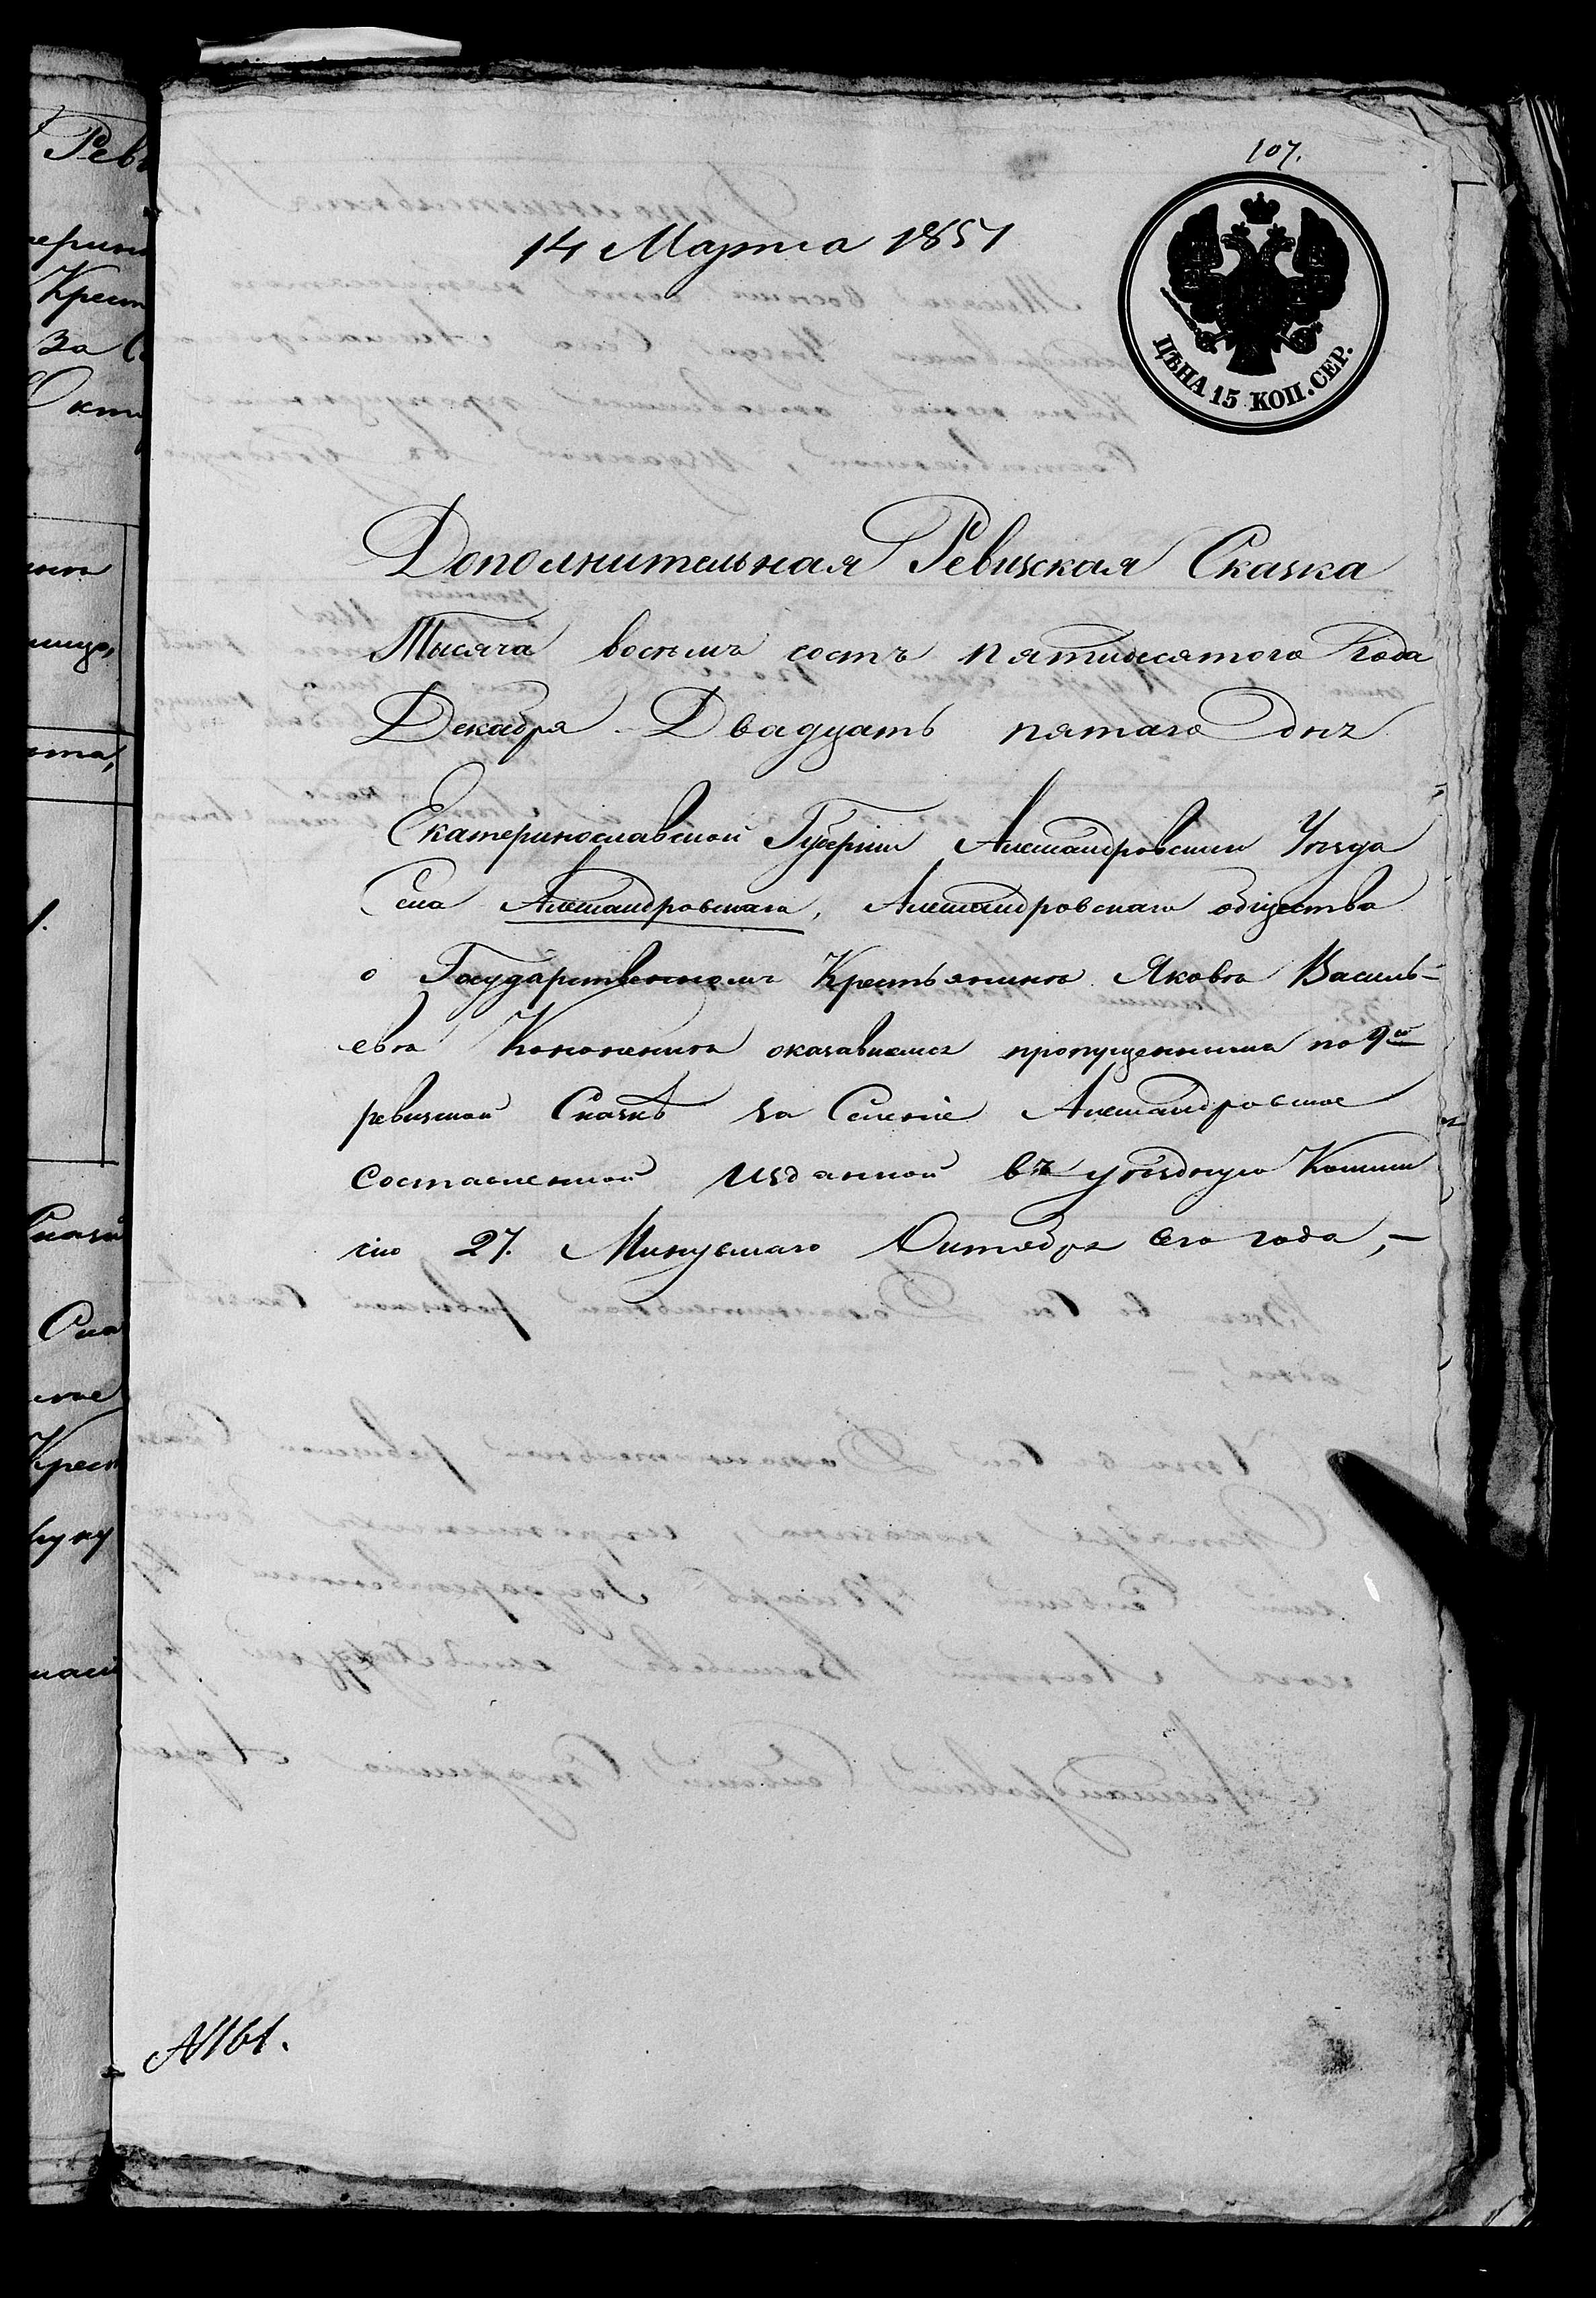 107.
14 Марта 1851
ЦѢНА 15 КОП. СЕР.
Дополнительная Ревизская Сказка
Тысяча восемь сотъ пятидесятого Года
Декабря Двадцать пятаго дня
Екатеринославской Губерніи Александровскаго Уѣзда
Села Александровскаго, Александровскаго общества
о Государственномъ Крестьянинѣ Яковѣ Василь-
евѣ Кононенкѣ оказавшемся пропущеннымъ по 9й
ревизской Сказкѣ за Селеніе Александровское
составленной изданной въ уѣздную Комми
сію 27. Минувшаго Октября сего года,—
№161.